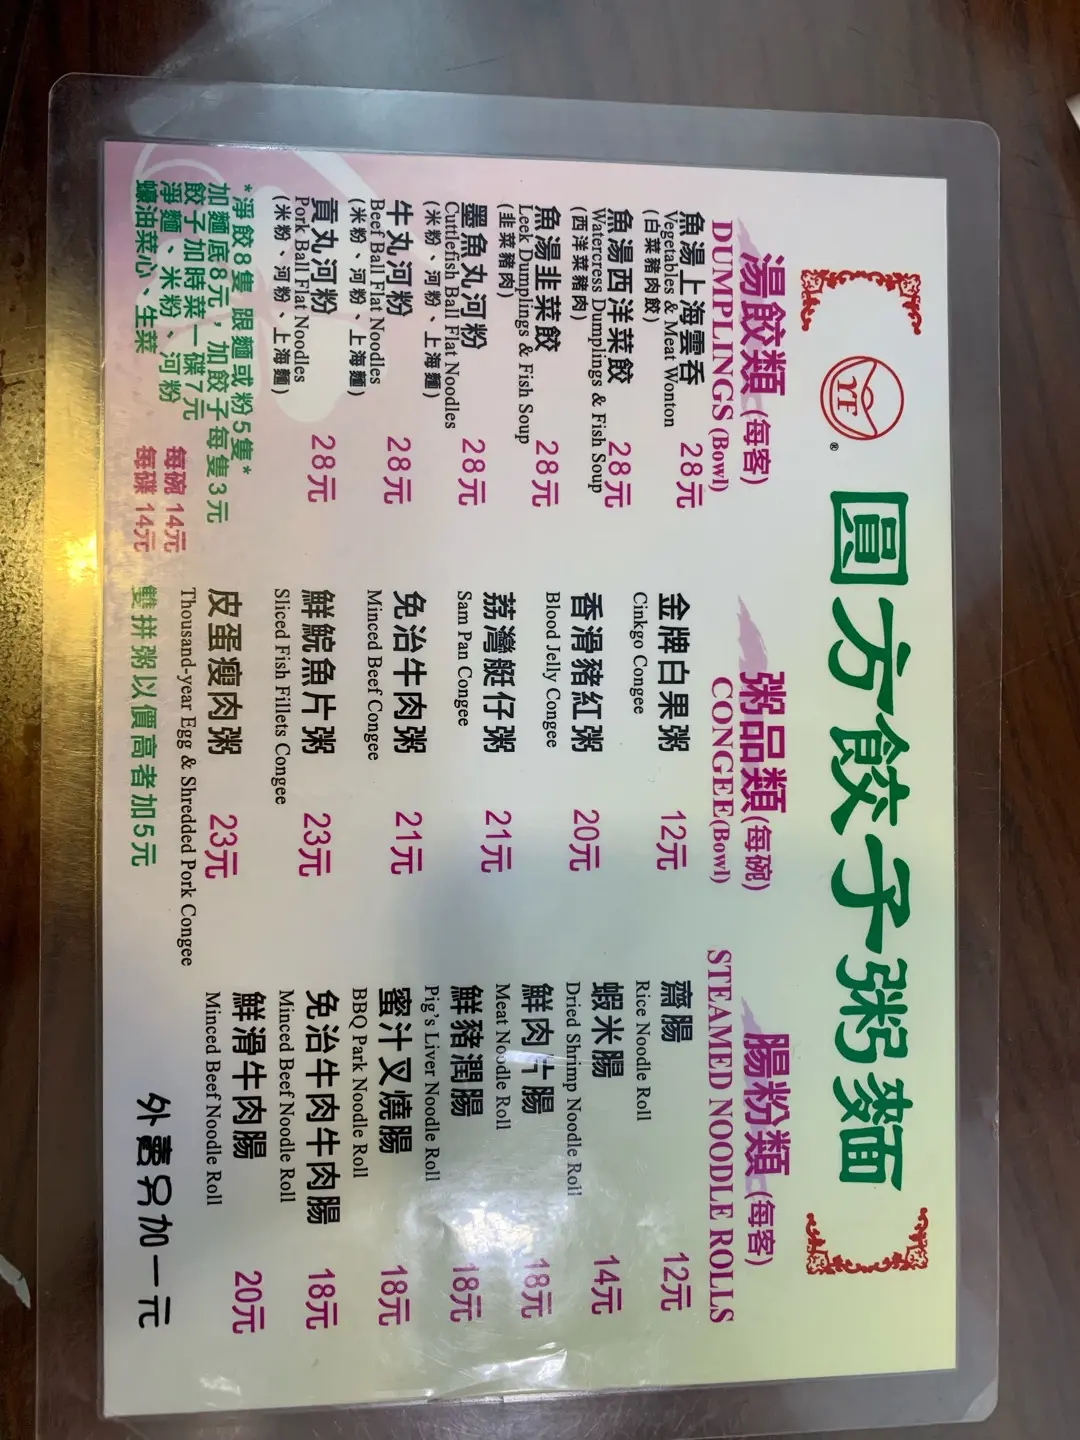 YF ®
圓方餃子粥麵
湯餃類(每客)
DUMPLINGS (Bowl)
魚湯上海雲吞 28元
Vegetables & Meat Wonton
(白菜豬肉餃)
魚湯西洋菜餃 28元
Watercress Dumplings & Fish Soup
(西洋菜豬肉)
魚湯韭菜餃 28元
Leek Dumplings & Fish Soup
(韭菜豬肉)
墨魚丸河粉 28元
Cuttlefish Ball Flat Noodles
(米粉、河粉、上海麵)
牛丸河粉 28元
Beef Ball Flat Noodles
(米粉、河粉、上海麵)
貢丸河粉 28元
Pork Ball Flat Noodles
(米粉、河粉、上海麵)
*淨餃8隻,跟麵或粉5隻*
加麵底8元,加餃子每隻3元
餃子加時菜一碟7元
淨麵、米粉、河粉 每碗 14元
蠔油菜心、生菜 每碟 14元
粥品類(每碗)
CONGEE(Bowl)
金牌白果粥 12元
Cinkgo Congee
香滑豬紅粥 20元
Blood Jelly Congee
荔灣艇仔粥 21元
Sam Pan Congee
免治牛肉粥 21元
Minced Beef Congee
鮮鯇魚片粥 23元
Sliced Fish Fillets Congee
皮蛋瘦肉粥 23元
Thousand-year Egg & Shredded Pork Congee
雙拼粥以價高者加5元
腸粉類(每客)
STEAMED NOODLE ROLLS
齋腸 12元
Rice Noodle Roll
蝦米腸 14元
Dried Shrimp Noodle Roll
鮮肉片腸 18元
Meat Noodle Roll
鮮豬潤腸 18元
Pig's Liver Noodle Roll
蜜汁叉燒腸 18元
BBQ Park Noodle Roll
免治牛肉牛肉腸 18元
Minced Beef Noodle Roll
鮮滑牛肉腸 20元
Minced Beef Noodle Roll
外賣另加一元